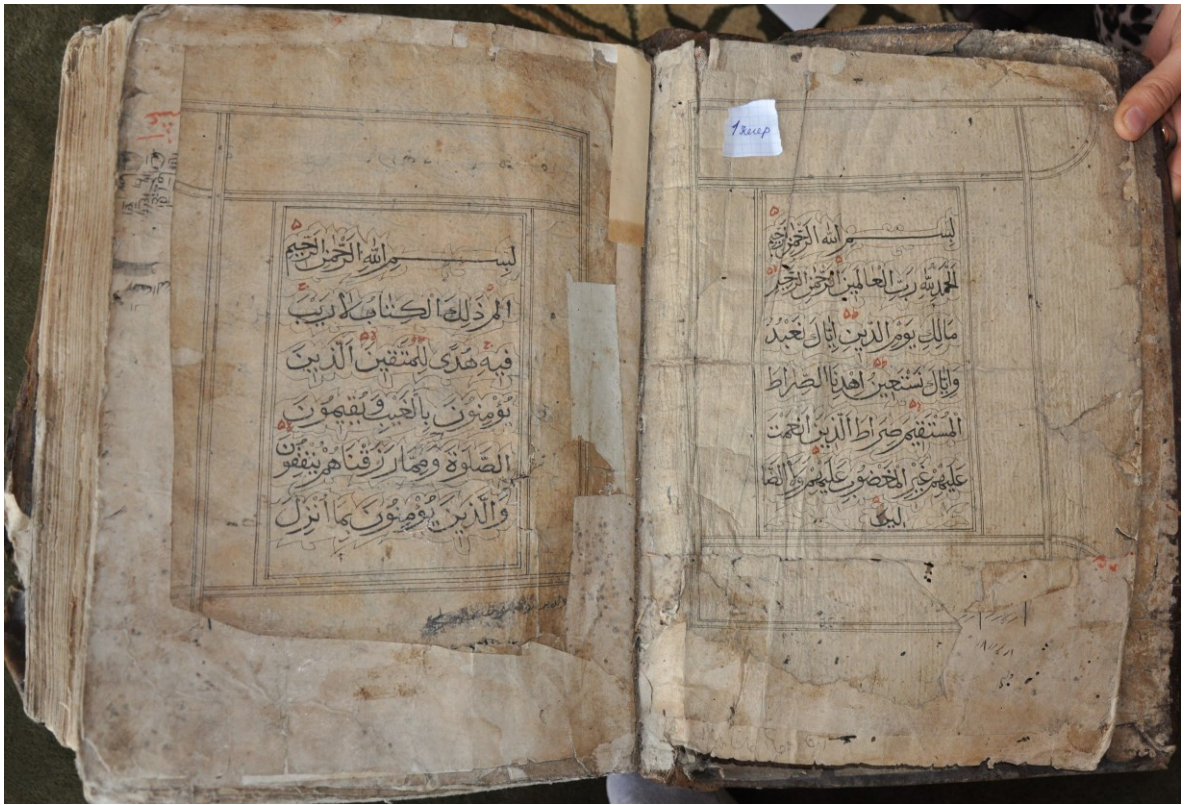 1 экер
بِسْمِ اللهِ الرَّحْمٰنِ الرَّحِيمِ
اَلْحَمْدُ لِلّٰهِ رَبِّ الْعَالَمِينَ الرَّحْمٰنِ الرَّحِيمِ
مَالِكِ يَوْمِ الدِّينِ اِيَّاكَ نَعْبُدُ
وَاِيَّاكَ نَسْتَعِينُ اِهْدِنَا الصِّرَاطَ
الْمُسْتَقِيمَ صِرَاطَ الَّذِينَ اَنْعَمْتَ
عَلَيْهِمْ غَيْرِ الْمَغْضُوبِ عَلَيْهِمْ وَلَا الضَّا
لِّينَ
بِسْمِ اللهِ الرَّحْمٰنِ الرَّحِيمِ
الم ذَلِكَ الْكِتَابُ لَا رَيْبَ
فِيهِ هُدًى لِلْمُتَّقِينَ اَلَّذِينَ
يُؤْمِنُونَ بِالْغَيْبِ وَيُقِيمُونَ
الصَّلٰوةَ وَمِمَّا رَزَقْنَاهُمْ يُنْفِقُونَ
وَالَّذِينَ يُؤْمِنُونَ بِمَا اُنْزِلَ